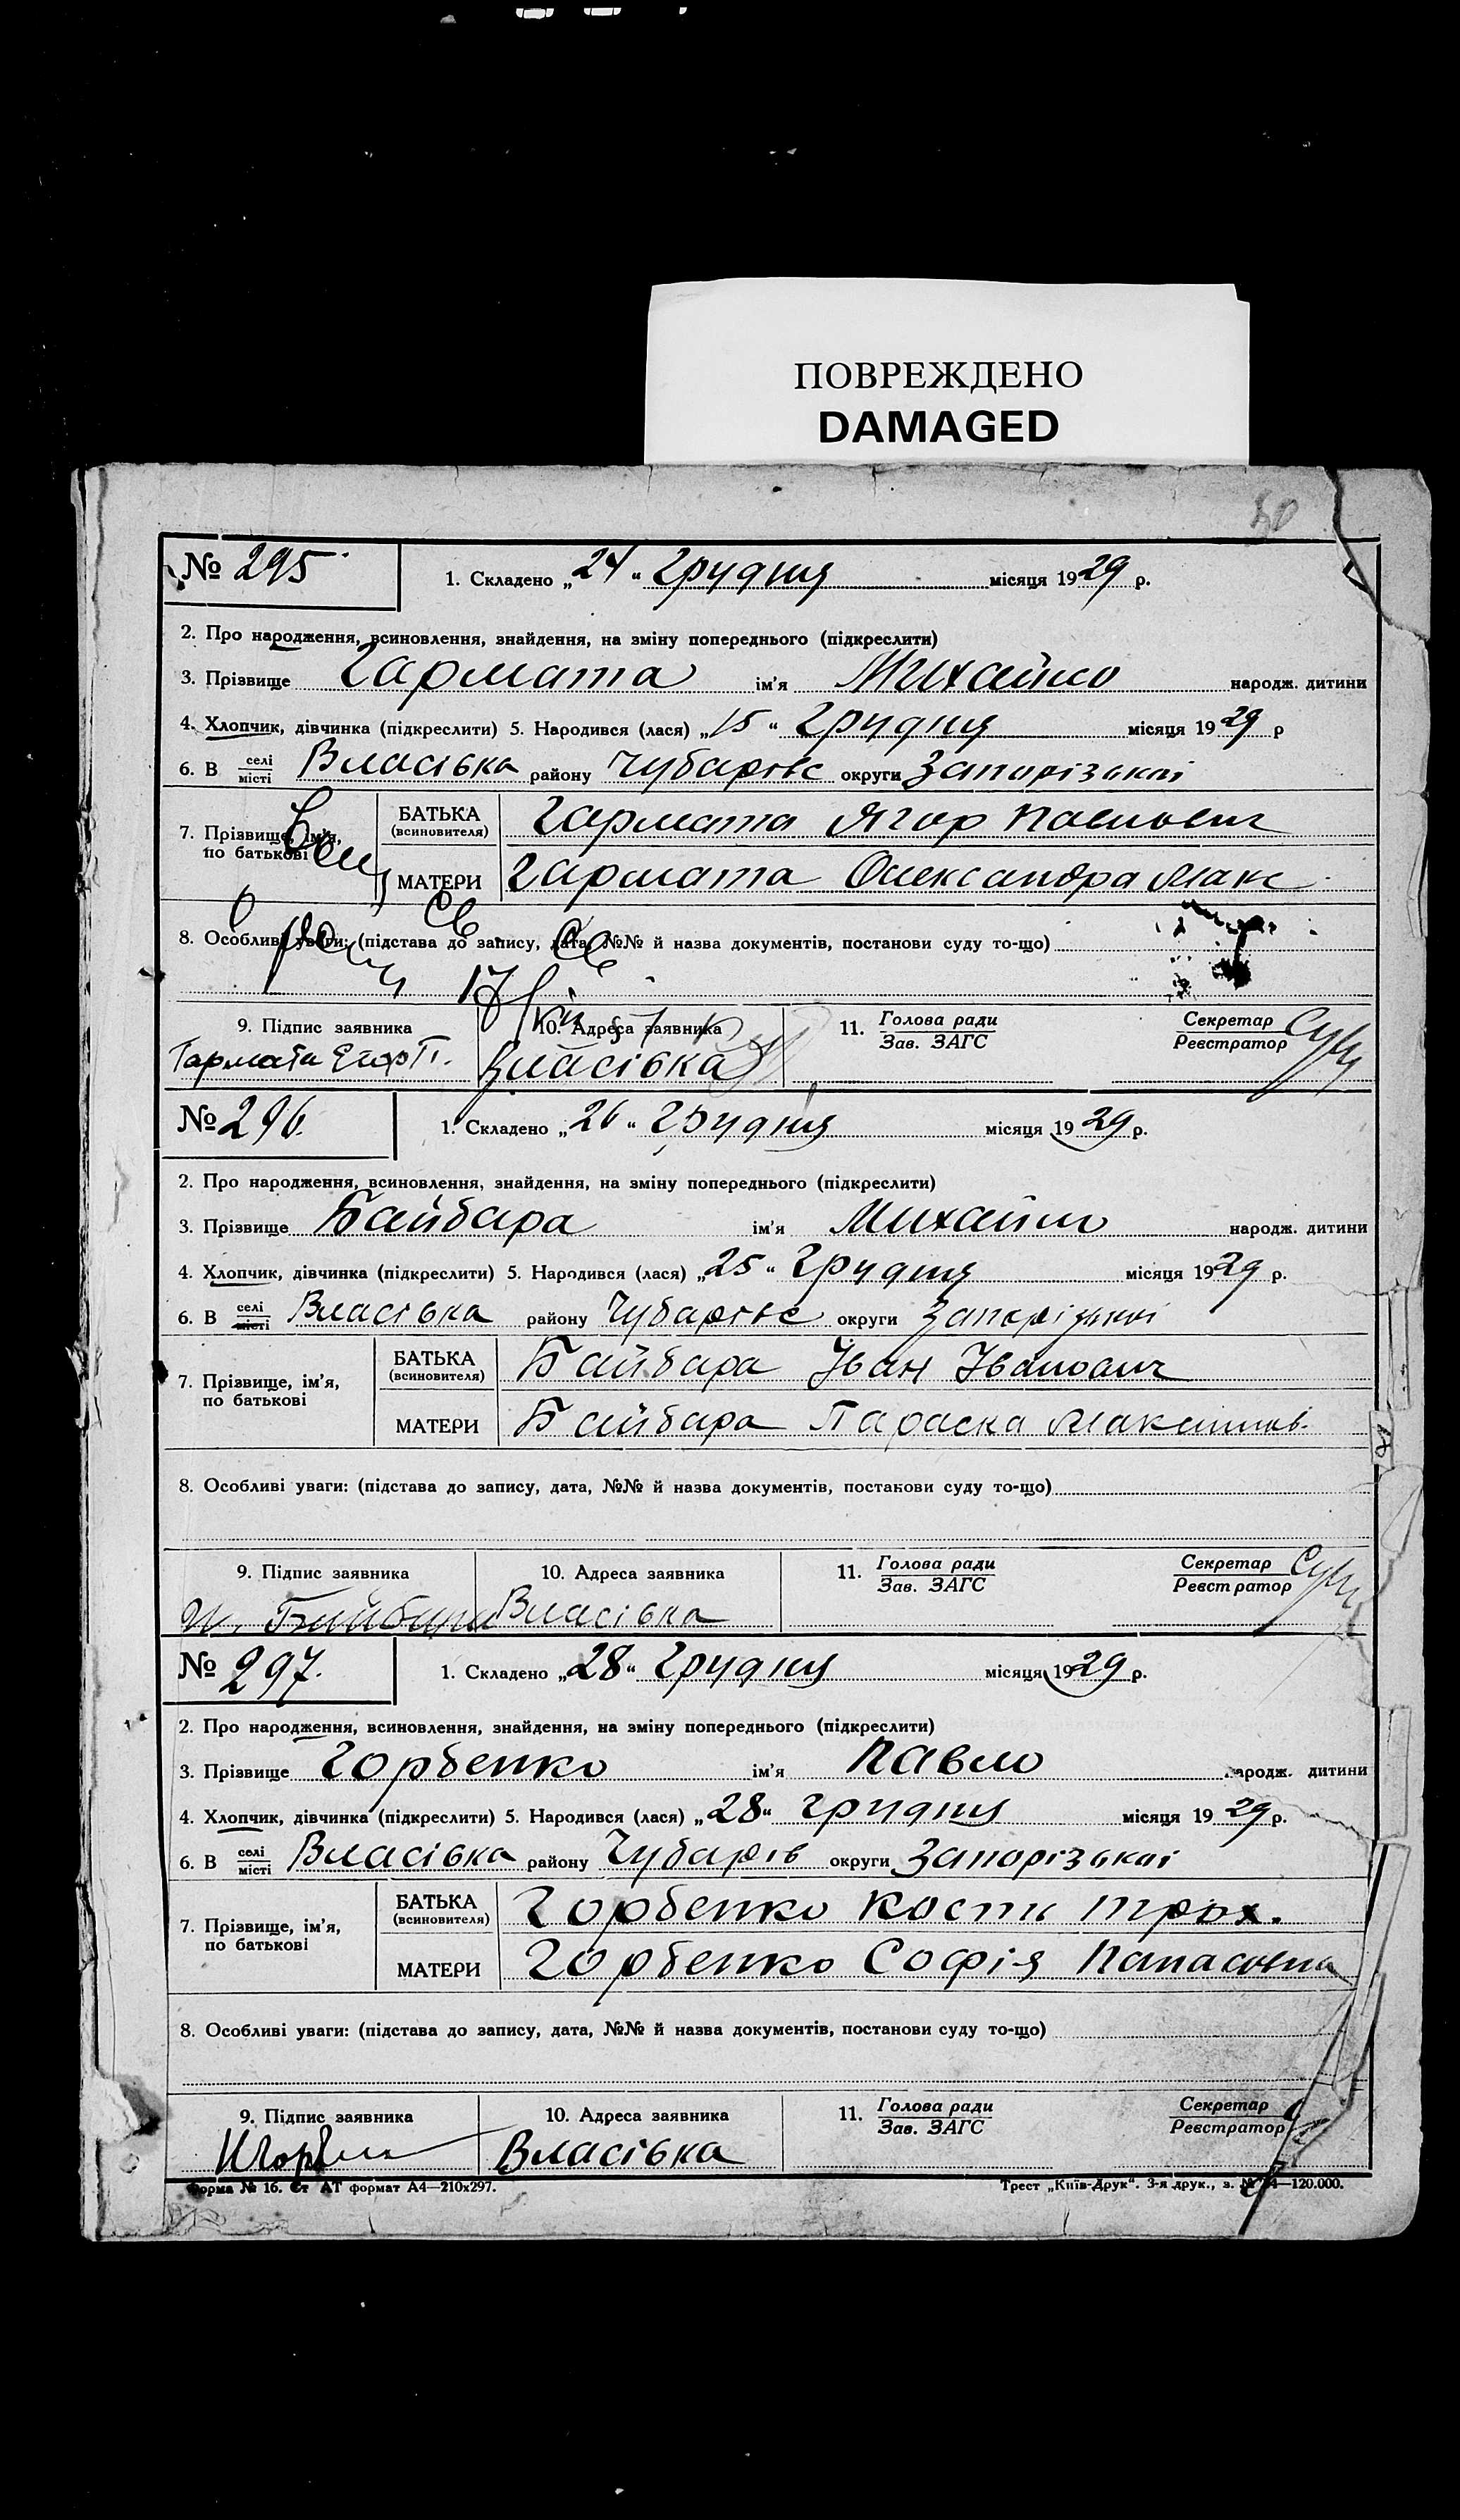 ПОВРЕЖДЕНО
DAMAGED
№ 295 1. Складено „24“ Грудня місяця 1929 р.
2. Про народження, всиновлення, знайдення, на зміну попереднього (підкреслити)
3. Прізвище Гармата ім'я Михайло народж. дитини
4. Хлопчик, дівчинка (підкреслити) 5. Народився (лася) „15“ Грудня місяця 1929 р
6. В селі місті Власівка району Чубарівс округи Запорізької
7. Прізвище, ім'я, по батькові
БАТЬКА (всиновителя) Гармата Ягор Павлович
МАТЕРИ Гармата Олександра Макс
8. Особливі уваги: (підстава до запису, дата, №№ й назва документів, постанови суду то-що)
9. Підпис заявника 10. Адреса заявника 11. Голова ради Зав. ЗАГС Секретар Реєстратор
Гармата Егор П. Власівка
№ 296. 1. Складено „26“ Грудня місяця 1929 р.
2. Про народження, всиновлення, знайдення, на зміну попереднього (підкреслити)
3. Прізвище Байбара ім'я Михайло народж. дитини
4. Хлопчик, дівчинка (підкреслити) 5. Народився (лася) „25“ Грудня місяця 1929 р.
6. В селі місті Власівка району Чубарівс округи Запорізької
7. Прізвище, ім'я, по батькові
БАТЬКА (всиновителя) Байбара Іван Іванович
МАТЕРИ Байбара Параска Максимов.
8. Особливі уваги: (підстава до запису, дата, №№ й назва документів, постанови суду то-що)
9. Підпис заявника 10. Адреса заявника 11. Голова ради Зав. ЗАГС Секретар Реєстратор
Власівка
№ 297. 1. Складено „28“ Грудня місяця 1929 р.
2. Про народження, всиновлення, знайдення, на зміну попереднього (підкреслити)
3. Прізвище Горбенко ім'я Павло народж. дитини
4. Хлопчик, дівчинка (підкреслити) 5. Народився (лася) „28“ Грудня місяця 1929 р.
6. В селі місті Власівка району Чубарів округи Запорізької
7. Прізвище, ім'я, по батькові
БАТЬКА (всиновителя) Горбенко Кость Трох.
МАТЕРИ Горбенко Софія Панасовна
8. Особливі уваги: (підстава до запису, дата, №№ й назва документів, постанови суду то-що)
9. Підпис заявника 10. Адреса заявника 11. Голова ради Зав. ЗАГС Секретар Реєстратор
Власівка
Форма № 16. Ст АТ формат А4—210х297. Трест „Київ-Друк“. 3-я друк., з. №—120.000.